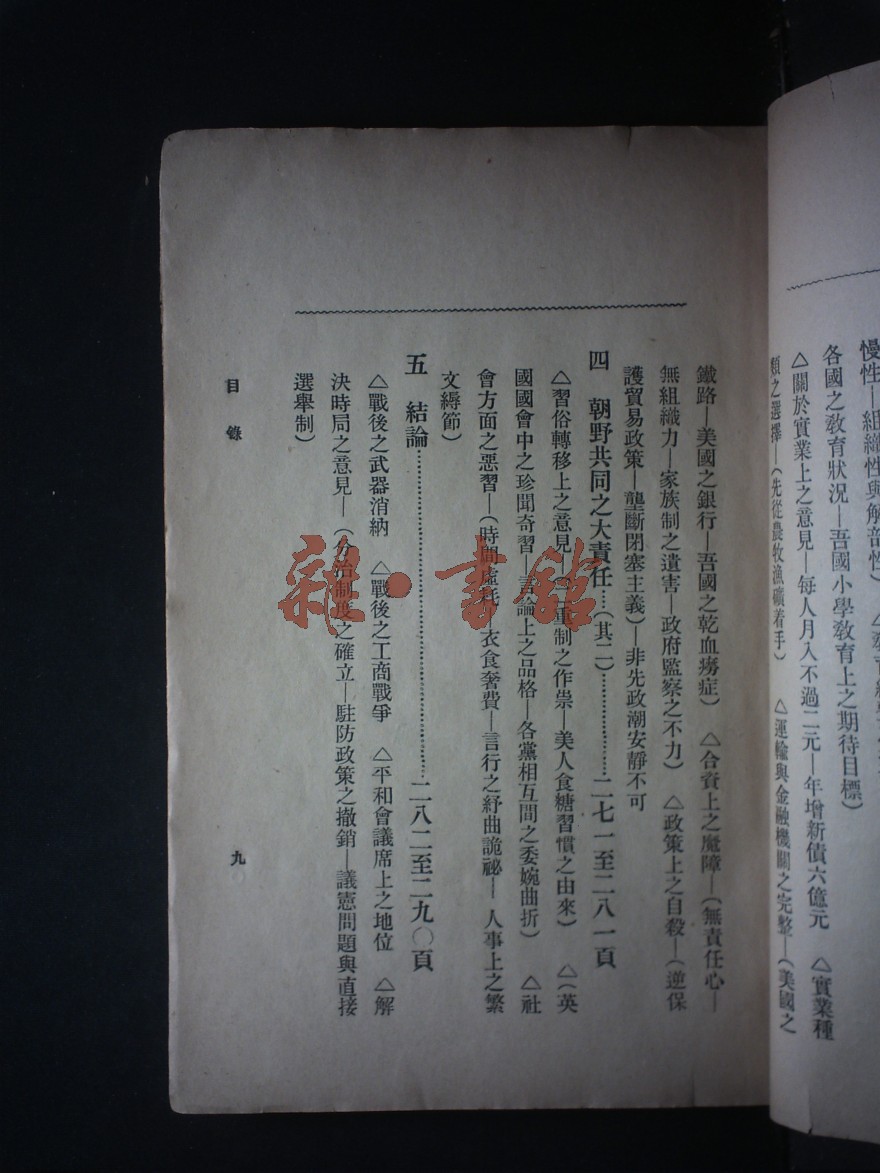 慢性—組織性與解剖性)
各國之教育狀況—吾國小學教育上之期待目標)
△關於實業上之意見—每人月入不過二元—年增新債六億元　△實業種
類之選擇—(先從農牧漁礦着手)　△運輸與金融機關之完整—(美國之
鐵路—美國之銀行—吾國之乾血癆症)　△合資上之魔障—(無責任心—
無組織力—家族制之遺害—政府監察之不力)　△政策上之自殺—(逆保
護貿易政策—壟斷閉塞主義)—非先政潮安靜不可
四　朝野共同之大責任…(其二)…………二七一至二八一頁
△習俗轉移上之意見—(二重制之作祟—美人食糖習慣之由來)　△(英
國國會中之珍聞奇習—言論上之品格—各黨相互間之委婉曲折)　△社
會方面之惡習—(時間虛耗—衣食奢費—言行之紆曲詭祕—人事上之繁
文縟節)
五　結論……………………………………二八二至二九〇頁
△戰後之武器消納　△戰後之工商戰爭　△平和會議席上之地位　△解
決時局之意見—(分治制度之確立—駐防政策之撤銷—議憲問題與直接
選舉制)
目錄
九
雜·書館